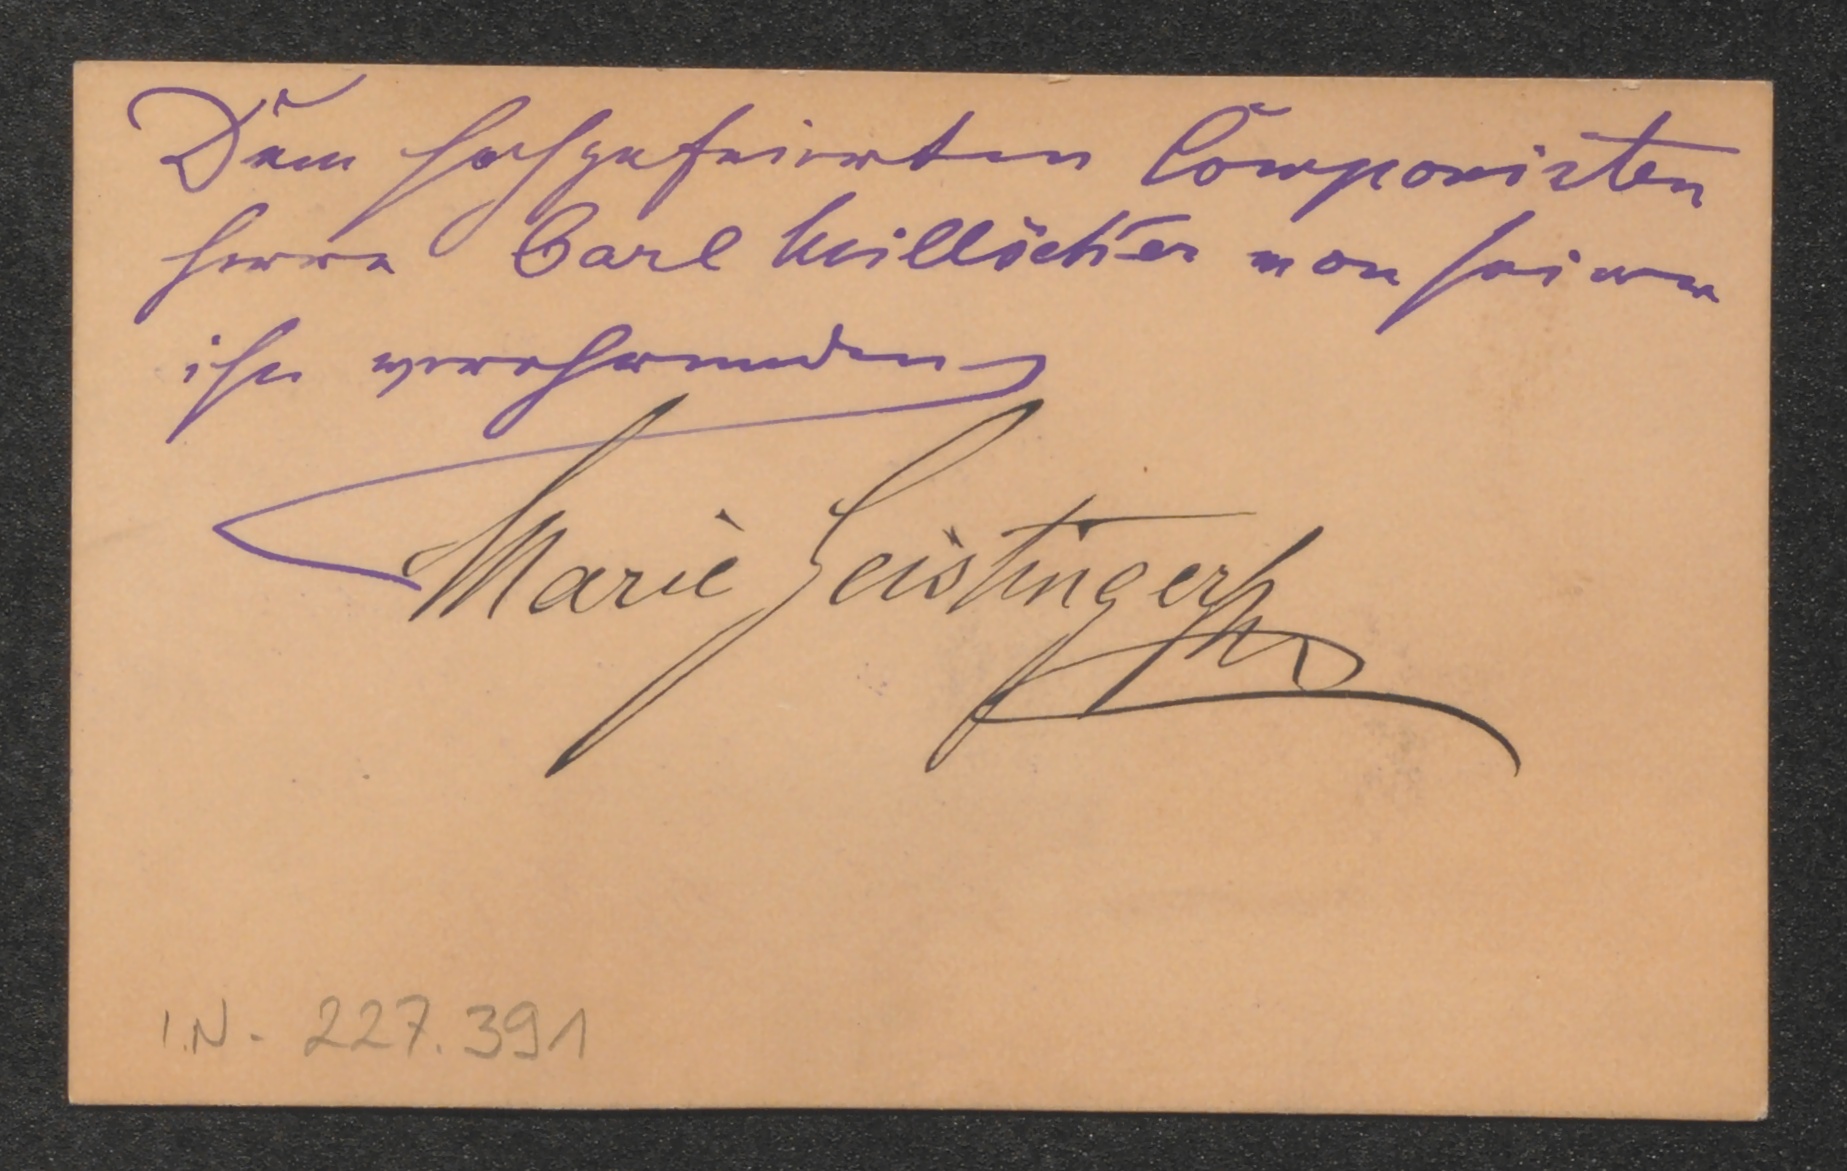 Dem hochgefeierten Componisten
Herrn Carl Millöcker von seiner
ihn verehrenden
Marie Geistinger
I.N. 227.391